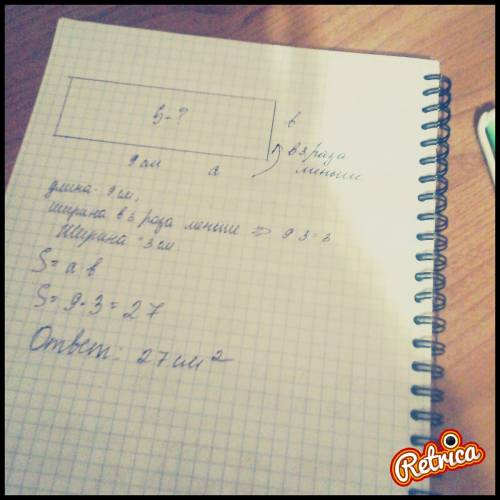 S - ?
в
9 см
а
в 3 раза
меньше
длина - 9 см,
ширина в 3 раза меньше => 9 : 3 = 3
Ширина = 3 см
S = a · в
S = 9 · 3 = 27
Ответ: 27 см²
Retrica